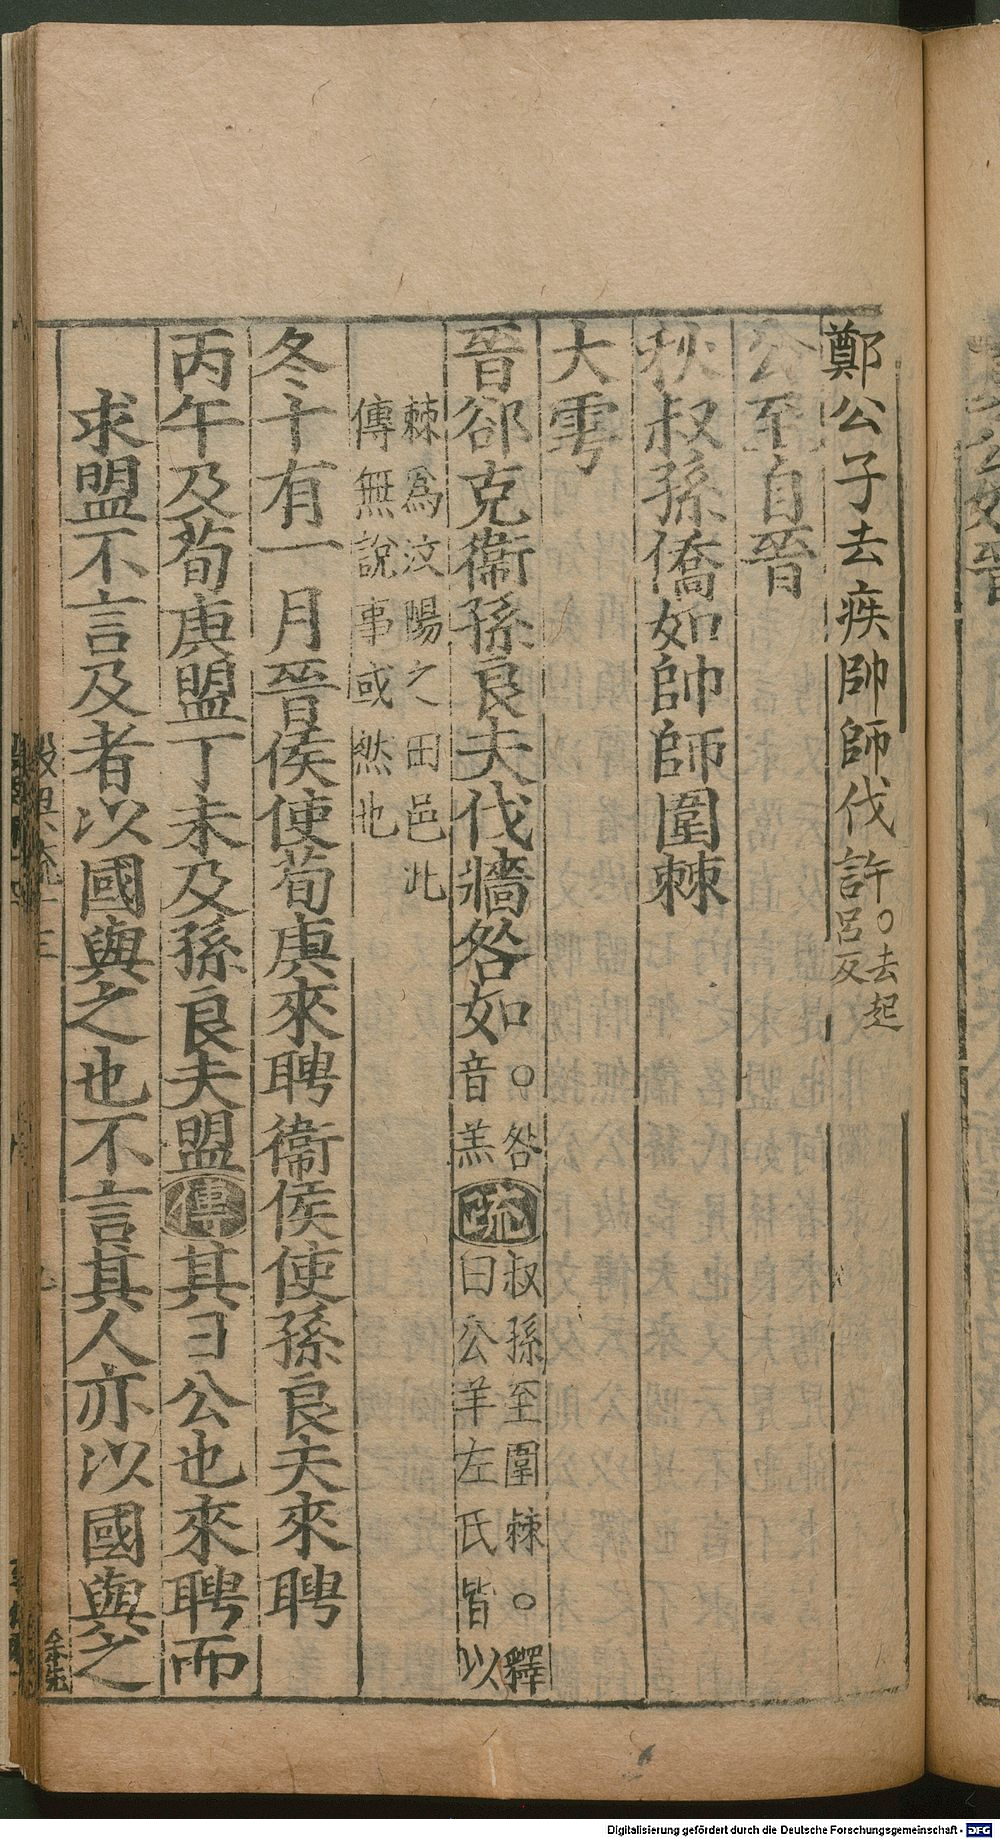 鄭公子去疾帥師伐許○去起呂反
公至自晉
秋叔孫僑如帥師圍棘
大雩
晉郤克衛孫良夫伐牆咎如○咎音羔疏叔孫至圍棘○釋曰公羊左氏皆以
棘爲汶陽之田邑此傳無說事或然也
冬十有一月晉侯使荀庚來聘衛侯使孫良夫來聘
丙午及荀庚盟丁未及孫良夫盟傳其曰公也來聘而
求盟不言及者以國與之也不言其人亦以國與之
余先
Digitalisierung gefördert durch die Deutsche Forschungsgemeinschaft - DFG